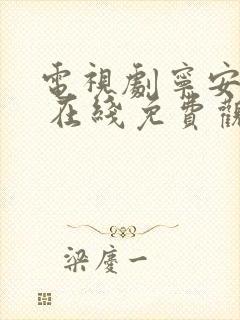 電視劇寧安
在綫免費觀
梁慶一